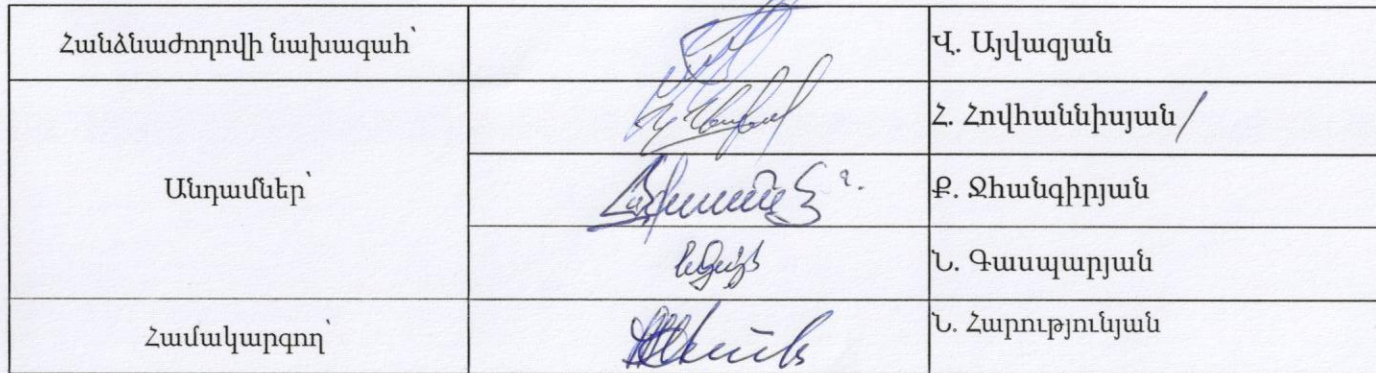 Հանձնաժողովի նախագահ՝
Վ. Այվազյան
Հ. Հովհաննիսյան
Անդամներ՝
Ք. Ջհանգիրյան
Ն. Գասպարյան
Համակարգող՝
Ն. Հարությունյան